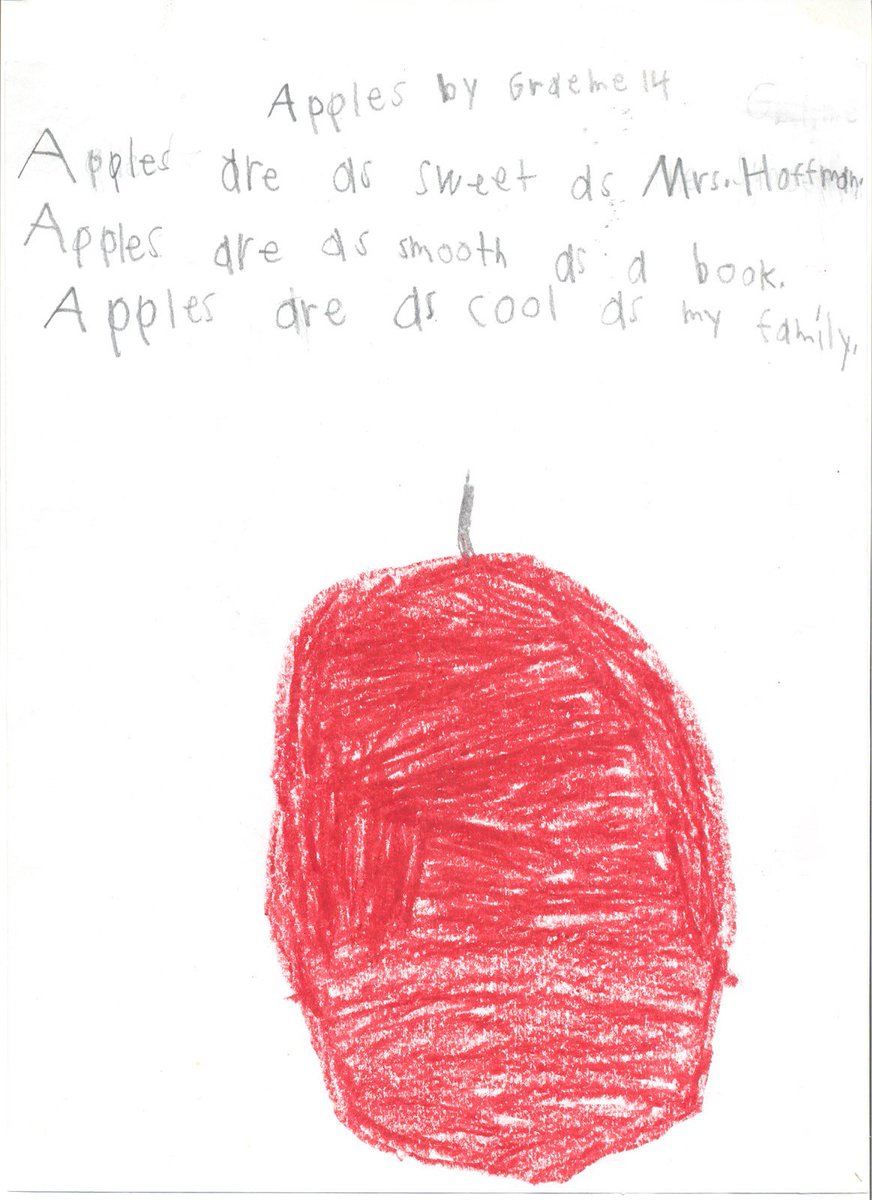 Apples by Graeme 14
Apples are as sweet as Mrs. Hoffman.
Apples are as smooth as a book.
Apples are as cool as my family.